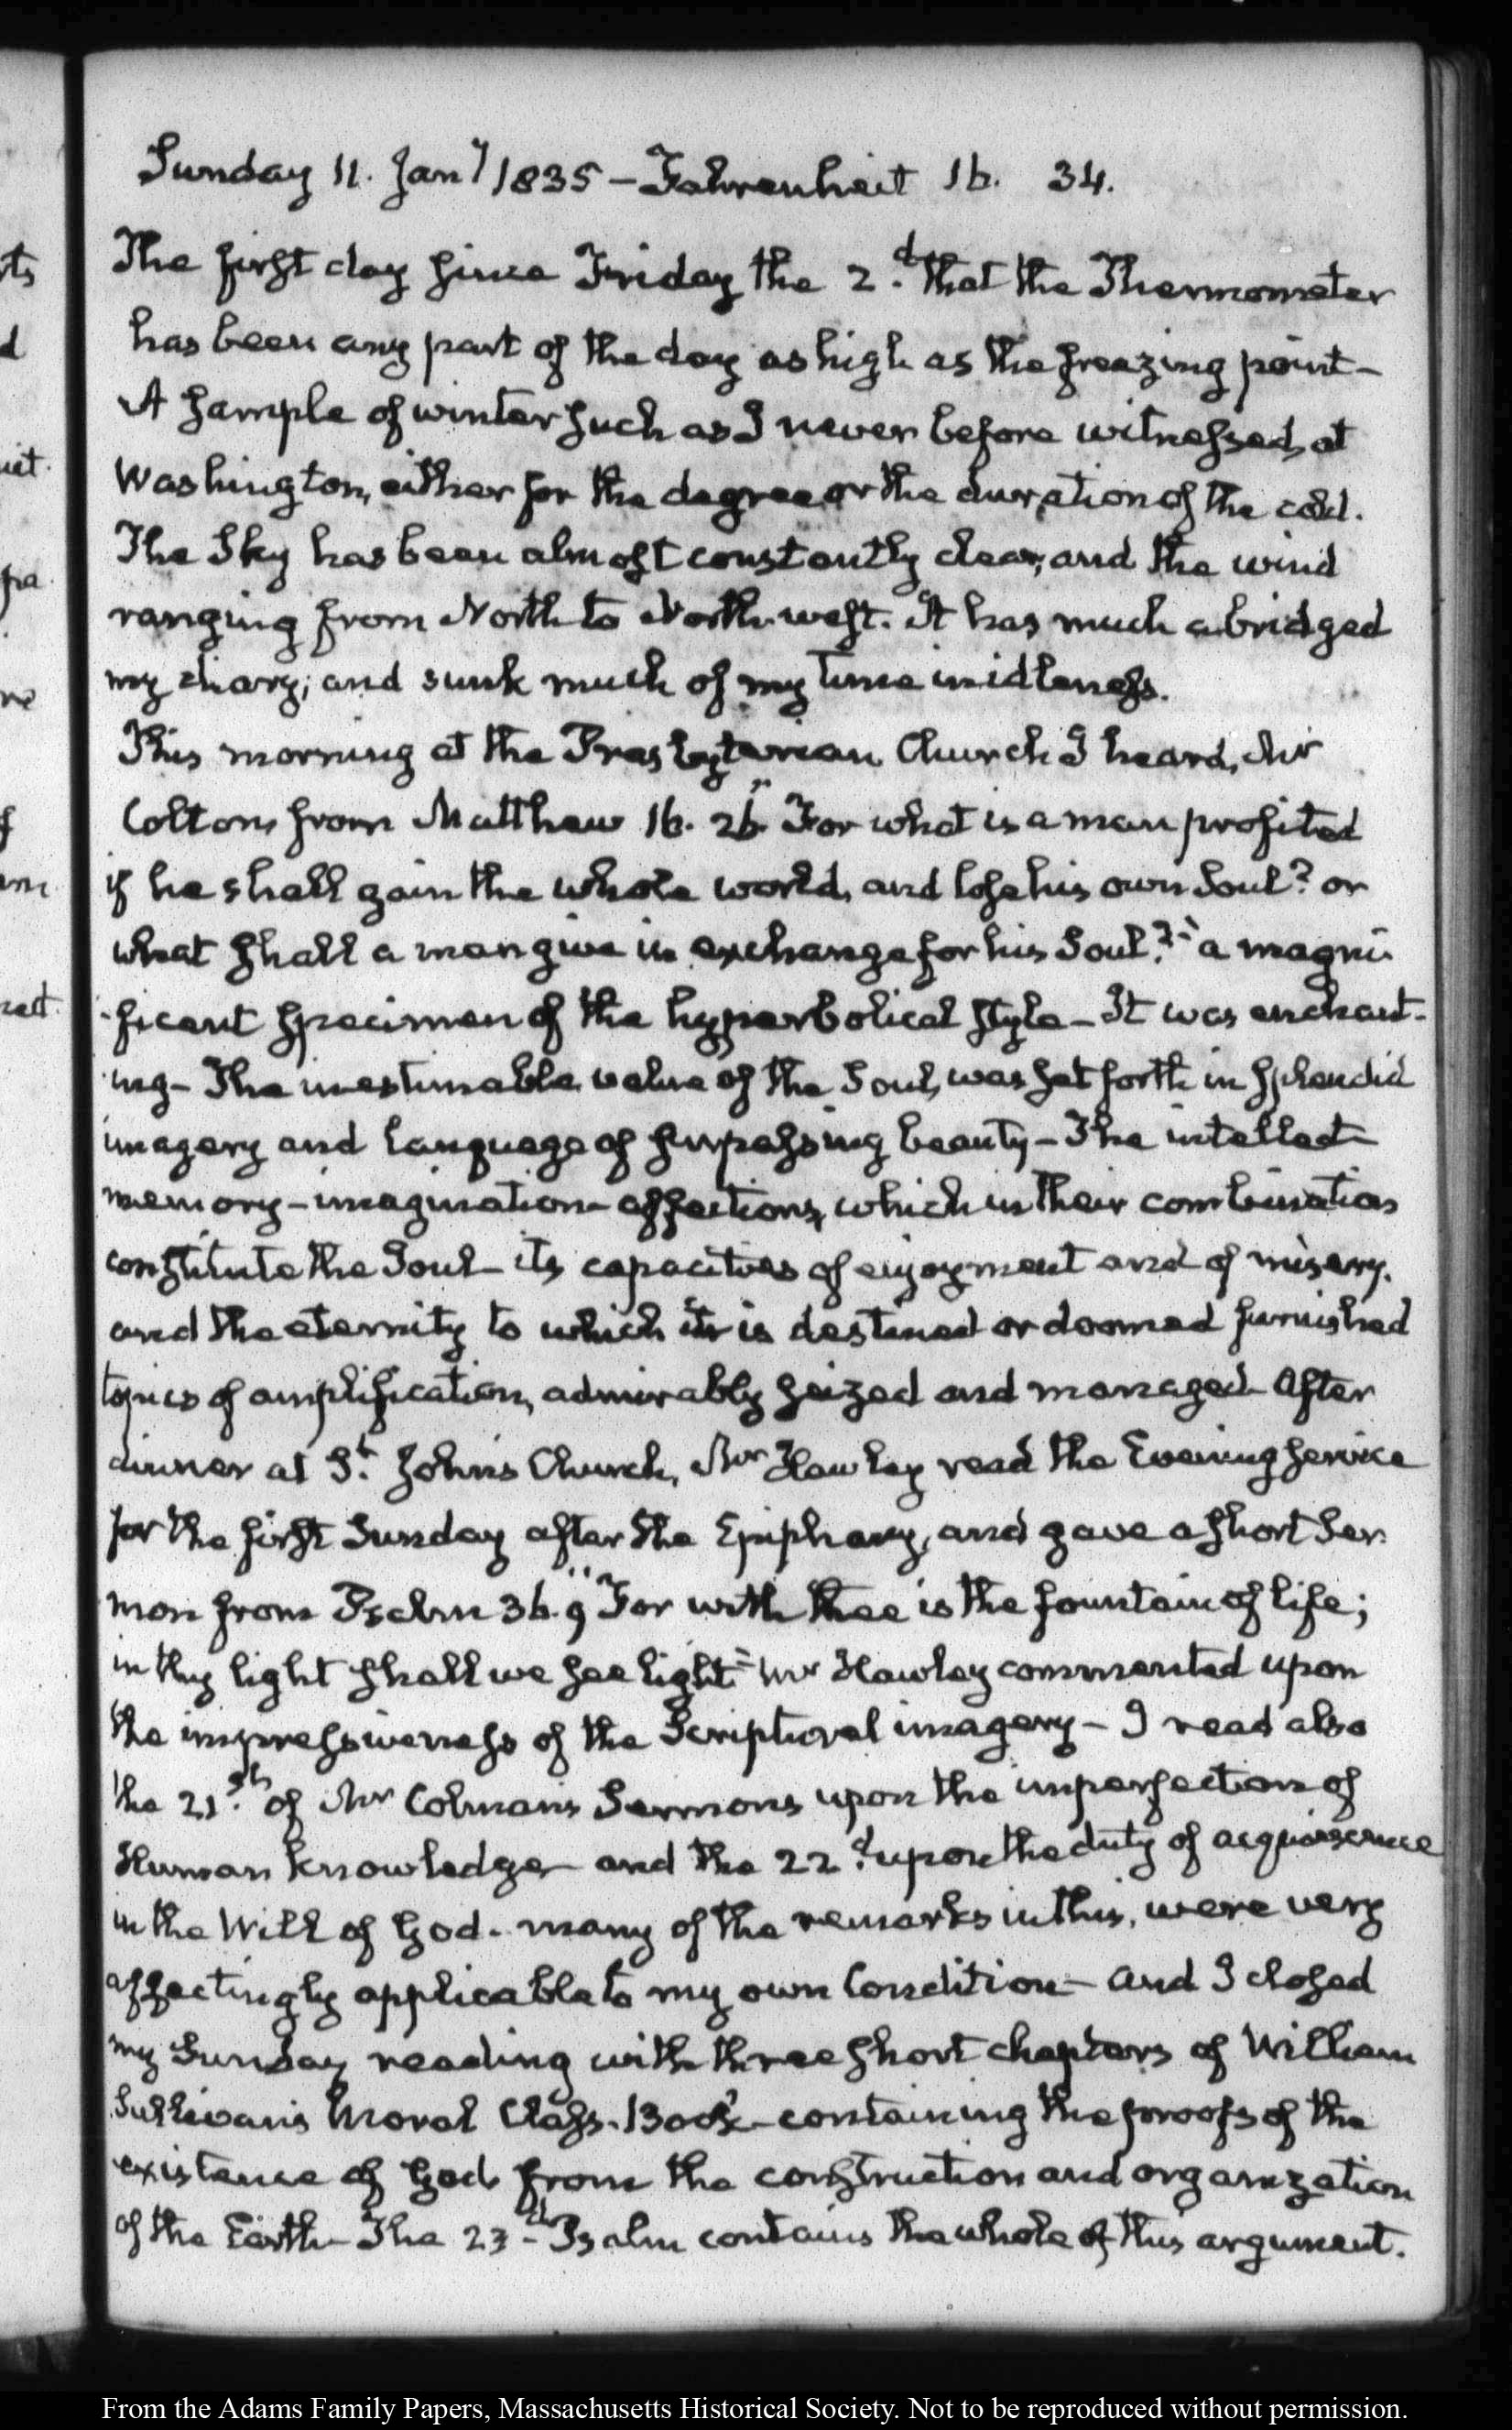 Sunday 11. Jany 1835 – Fahrenheit 16. 34.
The first day since Friday the 2.d that the Thermometer
has been any part of the day as high as the freezing point –
A sample of winter such as I never before witnessed, at
Washington, either for the degree or the duration of the cold.
The Sky has been almost constantly clear, and the wind
ranging from North to North-west. It has much abridged
my diary; and sunk much of my time in idleness.
This morning at the Presbyterian Church I heard, Mr
Colton, from Matthew 16. 26. "For what is a man profited
if he shall gain the whole world, and lose his own Soul? or
what shall a man give in exchange for his Soul?" a magni-
-ficent specimen of the hyperbolical style – It was enchant-
-ing – The inestimable value of the Soul, was set forth in splendid
imagery and language of surpassing beauty – The intellect –
memory – imagination – affections, which in their combination
constitute the Soul – its capacities of enjoyment and of misery.
and the eternity to which it is destined or doomed furnished
topics of amplification, admirably seized and managed – After
dinner at St. John's Church, Mr Hawley read the Evening service
for the first Sunday after the Epiphany, and gave a short Ser-
mon from Psalm 36. 9 "For with thee is the fountain of life;
in thy light shall we see light" Mr Hawley commented upon
the impressiveness of the Scriptural imagery – I read also
the 21.st of Mr Colman's Sermons upon the imperfection of
Human knowledge – and the 22.d upon the duty of acquiescence
in the Will of God. many of the remarks in this, were very
affectingly applicable to my own Condition – And I closed
my Sunday reading with three short chapters of William
Sullivan's Moral Class-Book – containing the proofs of the
existence of God from the construction and organization
of the Earth – The 23d Psalm contains the whole of this argument.
From the Adams Family Papers, Massachusetts Historical Society. Not to be reproduced without permission.